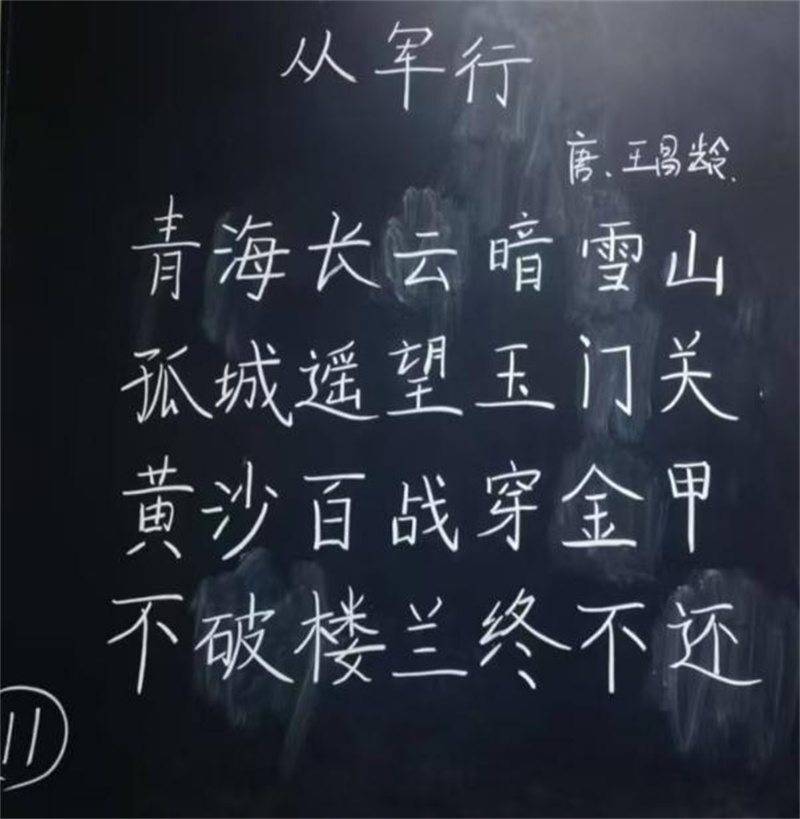 从军行
唐、王昌龄.
青海长云暗雪山
孤城遥望玉门关
黄沙百战穿金甲
不破楼兰终不还
11